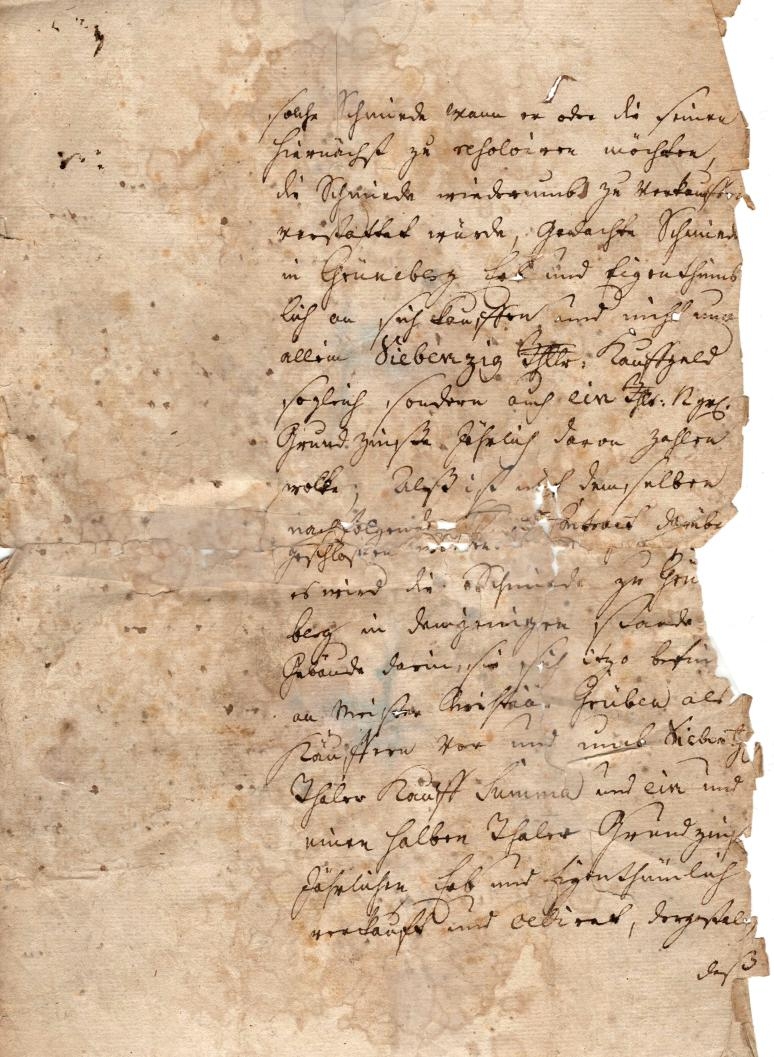 solche Schmiede wann er oder die seinen
hiernächst zu möchten,
die Schmiede wiederumb zu verkauffen
verstattet würde, Gedachte Schmiede
in Grüneberg Erb und Eigenthüm
lich an sich kauffen und nicht nur
allein Siebenzig Thlr: Kauffgeld
sogleich sondern auch ein Thlr: 12 gr:
Grund Zinße Jährlich davon zahlen
wolle; Alß ist mit demselben
nachfolgender Contract darüber
geschloßen worden.
es wird die Schmiede zu Grü
berg in demjenigen Stande
Gebäude darin sie sich itzo befin
an Meister Christian Grüben als
Käuffern vor und umb Siebentzig
Thaler Kauff Summa und ein und
einen halben Thaler Grundzinß
Jährlichen Erb und Eigenthümlich
verkaufft und cediret, dergestalt
daß